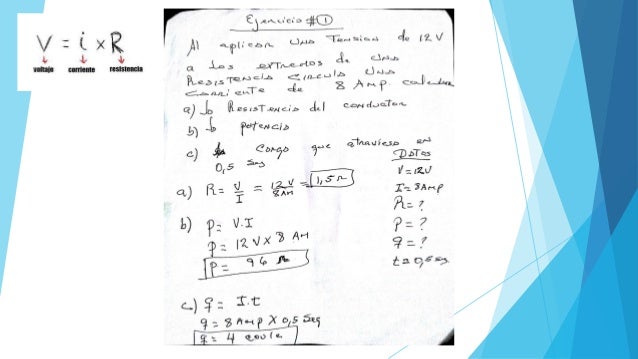 V = i x R
voltaje corriente resistencia
Ejercicio #1
Al aplicar una Tension de 12 V
a los extremos de una
Resistencia circula una
corriente de 8 Amp. calcular
a) la Resistencia del conductor
b) la potencia
c) la carga que atraviesa en
0,5 Seg
Datos
V = 12V
I = 8Amp
R = ?
P = ?
q = ?
t = 0,5 seg
a) R = V/I = 12 V/8 AM = 1,5 Ω
b) p = V.I
p = 12 V x 8 AM
p = 96
c) q = I.t
q = 8 Amp x 0,5 Seg
q = 4 coul